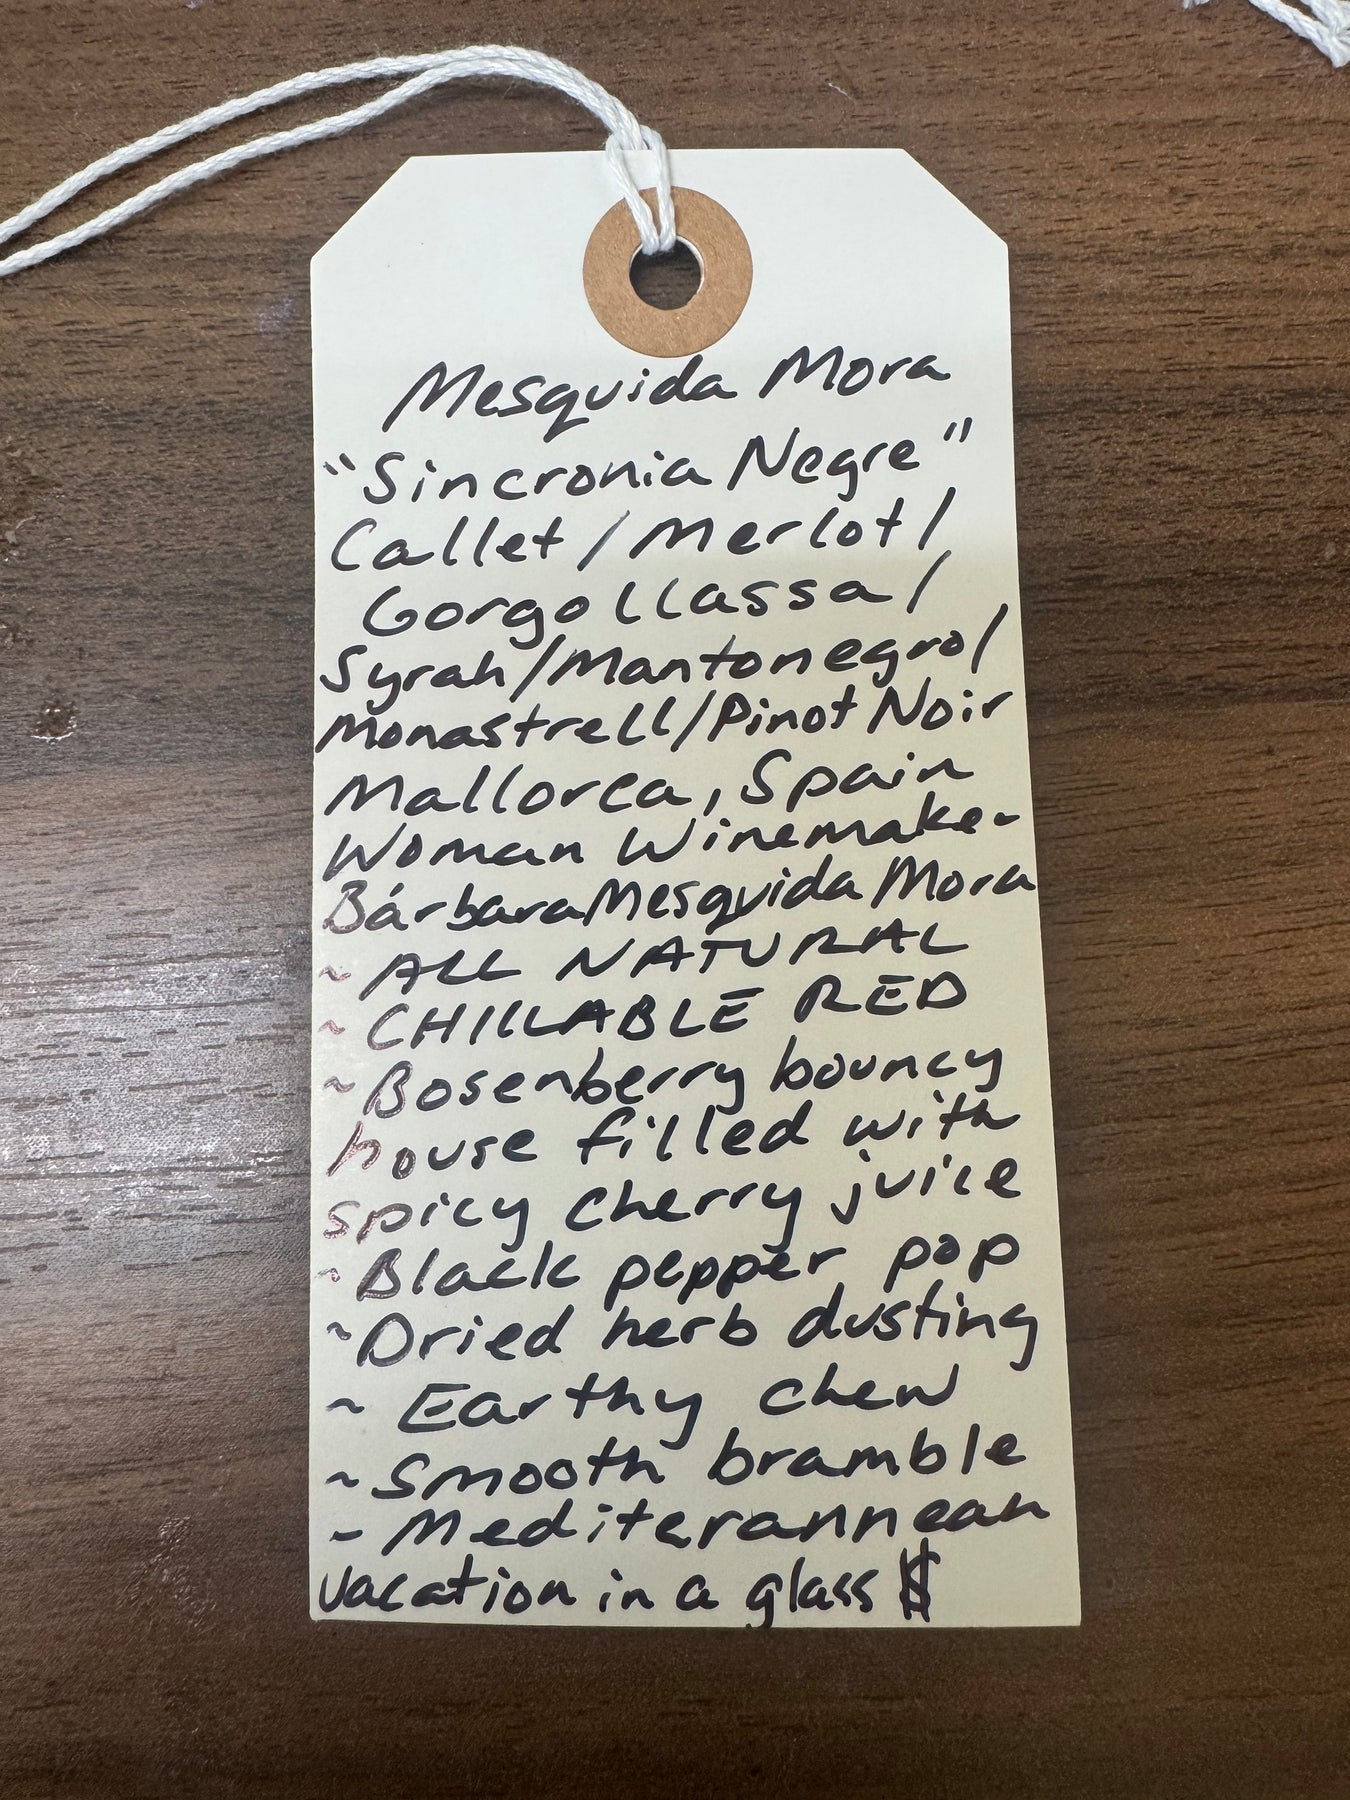 Mesquida Mora
"Sincronia Negre"
Callet/Merlot/
Gorgollassa/
Syrah/Mantonegro/
Monastrell/Pinot Noir
Mallorca, Spain
Woman Winemaker
Bárbara Mesquida Mora
~ ALL NATURAL
~ CHILLABLE RED
~ Bosenberry bouncy
house filled with
spicy cherry juice
~ Black pepper pop
~ Dried herb dusting
~ Earthy chew
~ Smooth bramble
~ Mediterannean
vacation in a glass $